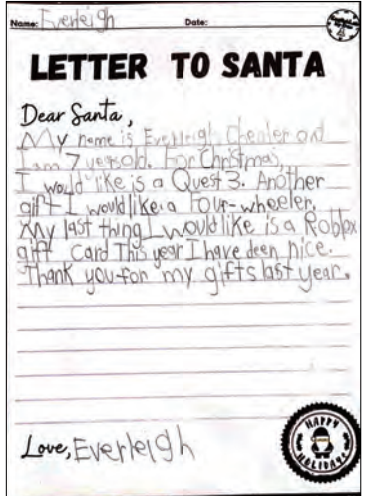 Name: Everleigh Date:
LETTER TO SANTA
Dear Santa,
My name is Everleigh Cheater and
I am 7 yearsold. For Christmas,
I would like is a Quest 3. Another
gift I would like a Four-wheeler.
My last thing I would like is a Roblox
gift card This year I have deen nice.
Thank you for my gifts last year.
HAPPY
HOLIDAYS
Love, Everleigh